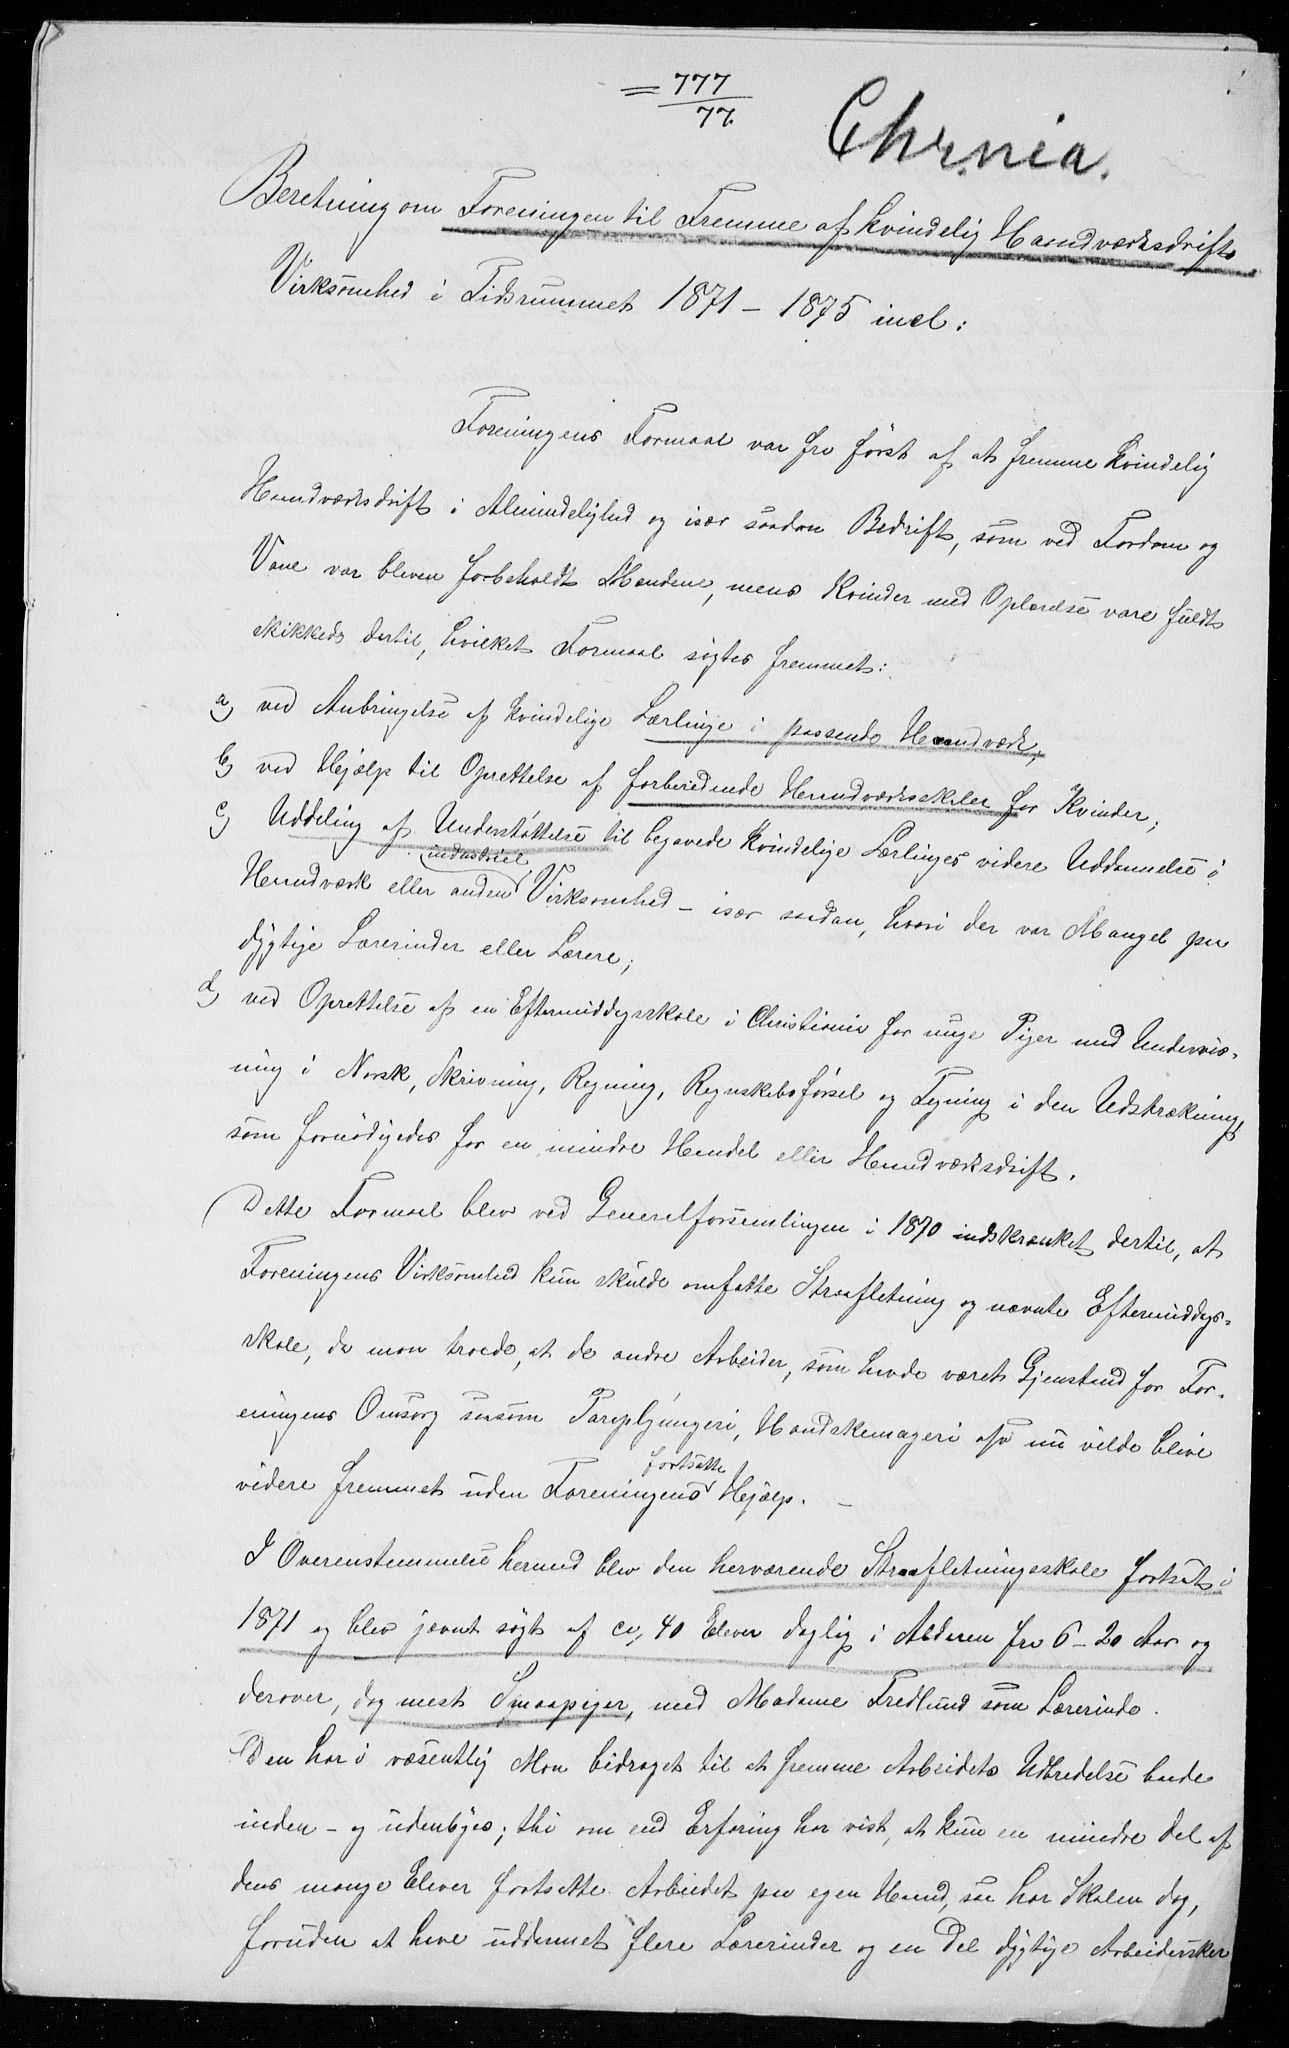 = 777
77.
Chrnia.
Beretning om Foreningen til Fremme af kvindelig Haandværksdrifts
Virksomhed i Tidsrummet 1871 – 1875 incl:
Foreningens Formaal var fra først af at fremme kvindelig
Haandværksdrift i Almindelighed og især saadan Bedrift, som ved Fordom og
Vane var bleven forbeholdt Mændene, mens Kvinder med Oplærelse vare fuldt
skikkede dertil, hvilket Formaal søgtes fremmet:
a) ved Anbringelse af kvindelige Lærlinge i passende Haandværk;
b) ved Hjælp til Oprettelse af forberedende Haandværksskoler for Kvinder;
c) Uddeling af Understøttelse til begavede kvindelige Lærlinges videre Uddannelse i
industriel
Haandværk eller anden Virksomhed – især saadan, hvori der var Mangel paa
dygtige Lærerinder eller Lærere;
d) ved Oprettelse af en Eftermiddagsskole i Christiania for unge Piger med Undervis-
ning i Norsk, Skrivning, Regning, Regnskabsførsel og Tegning i den Udstrækning,
som fornødigedes for en mindre Handel eller Haandværksdrift.
Dette Formaal blev ved Generalforsamlingen i 1870 indskrænket dertil, at
Foreningens Virksomhed kun skulde omfatte Straafletning og nævnte Eftermiddags-
skole, da man troede, at de andre Arbeider, som havde været Gjenstand for For-
eningens Omsorg saasom Paraplymageri, Handskemageri osv nu vilde blive
fortsatte
videre fremmet uden Foreningens Hjælp. –
I Overenstemmelse hermed blev den herværende Straafletningsskole fortsat i
1871 og blev jævnt søgt af ca, 40 Elever daglig i Alderen fra 6 – 20 Aar og
derover, dog mest Smaapiger, med Madame Fredlund som Lærerinde.
Den har i væsentlig Mon bidraget til at fremme Arbeidets Udbredelse baade
inden – og udenbyes; thi om end Erfaring har vist, at kun en mindre Del af
dens mange Elever fortsatte Arbeidet paa egen Haand, saa har Skolen dog,
foruden at have uddannet flere Lærerinder og en Del dygtige Arbeidersker